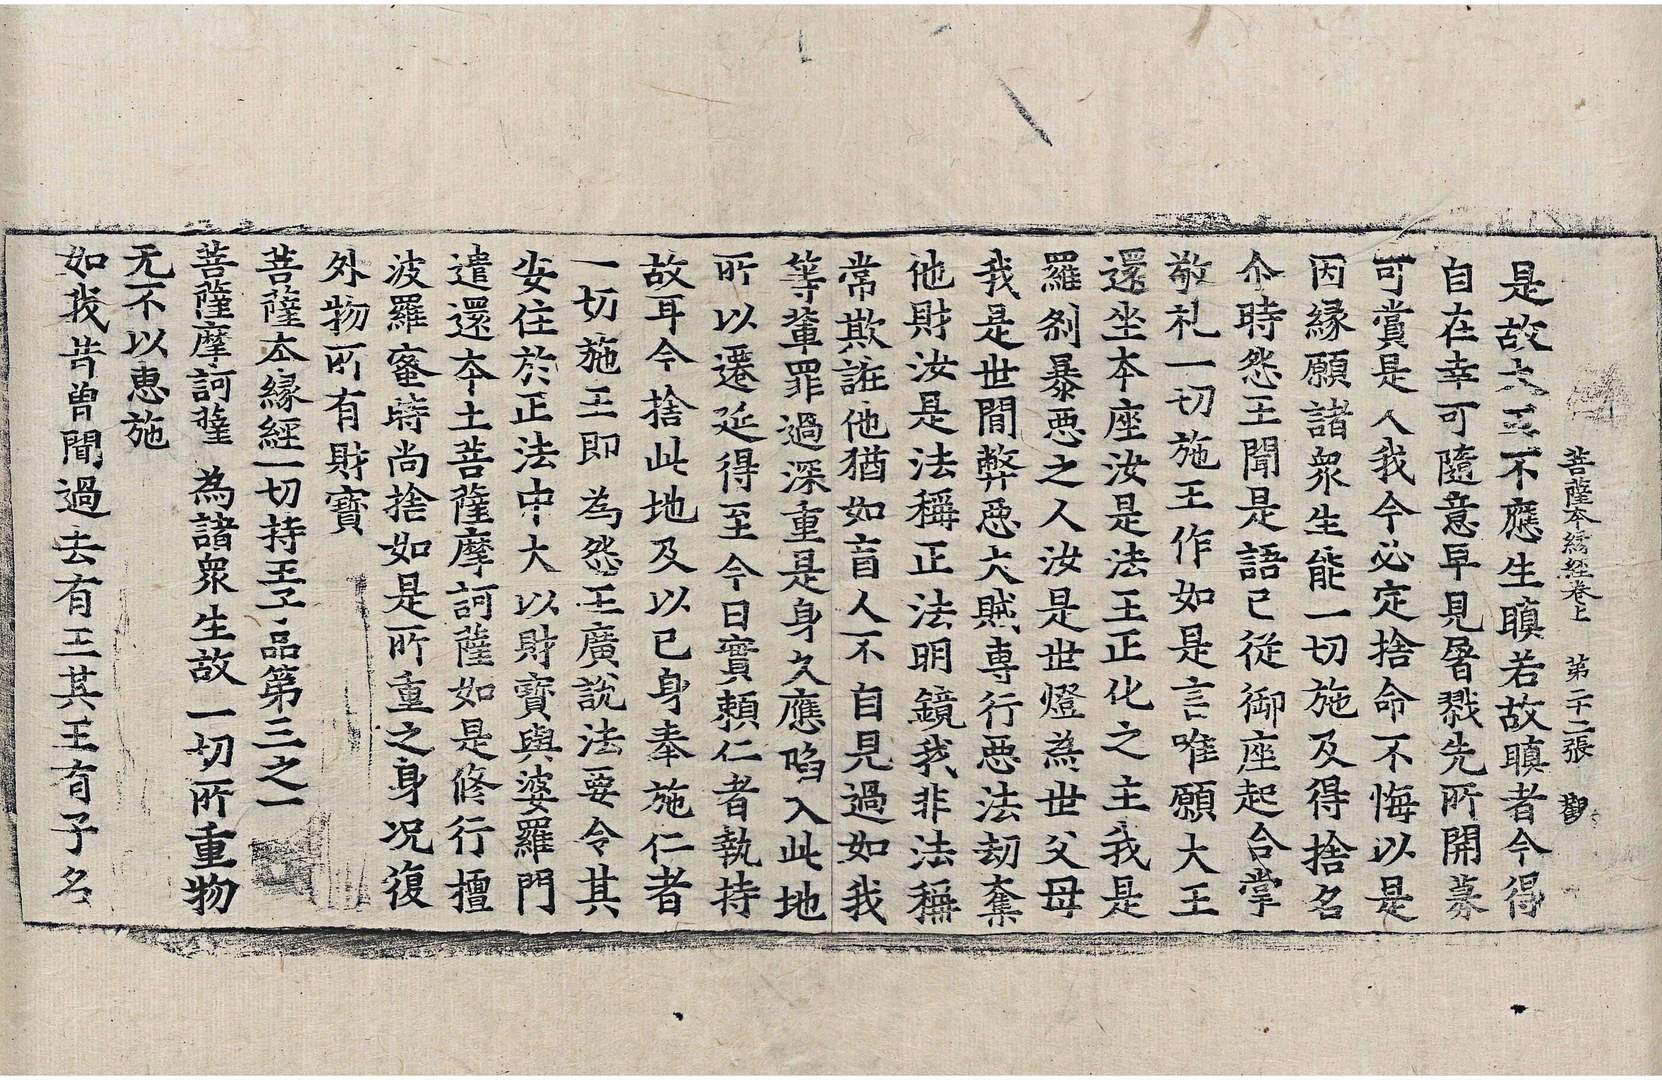 菩薩本縁経卷上 第二十二張 觀
是故大王不應生瞋若故瞋者今得
自在幸可隨意早見屠戮先所開募
可賞是人我今必定捨命不悔以是
因縁願諸衆生能一切施及得捨名
尒時怨王聞是語已從御座起合掌
敬礼一切施王作如是言唯願大王
還坐本座汝是法王正化之主我是
羅刹暴惡之人汝是世燈為世父母
我是世間弊惡大賊専行惡法劫奪
他財汝是法稱正法明鏡我非法稱
常欺誑他猶如盲人不自見過如我
等軰罪過深重是身久應陷入此地
所以遷延得至今日實頼仁者執持
故耳今捨此地及以己身奉施仁者
一切施王即為怨王廣說法要令其
安住於正法中大以財寳與婆羅門
遣還本土菩薩摩訶薩如是修行檀
波羅蜜時尚捨如是所重之身况復
外物所有財寳
菩薩本縁經一切持王子品第三之一
菩薩摩訶薩為諸衆生故一切所重物
无不以惠施
如我昔曾聞過去有王其王有子名